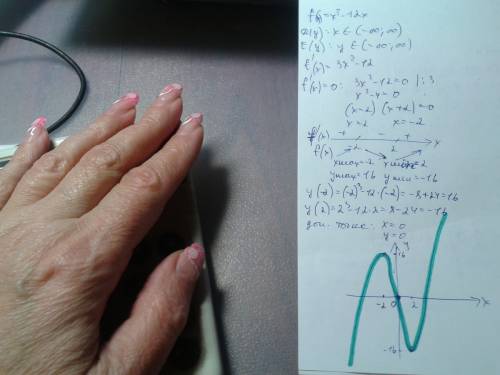 f(x)=x³-12x
D(y): x ∈ (-∞; ∞)
E(y): y ∈ (-∞; ∞)
f'(x) = 3x²-12
f'(x)=0: 3x²-12=0 |:3
x²-4=0
(x-2)(x+2)=0
x=2 x=-2
f'(x) + - +
f(x) -2 2 x
xmax=-2 xmin=2
ymax=16 ymin=-16
y(-2)=(-2)³-12·(-2)=-8+24=16
y(2)=2³-12·2=8-24=-16
доп. точка: x=0
y=0
y
16
-2 0 2 x
-16